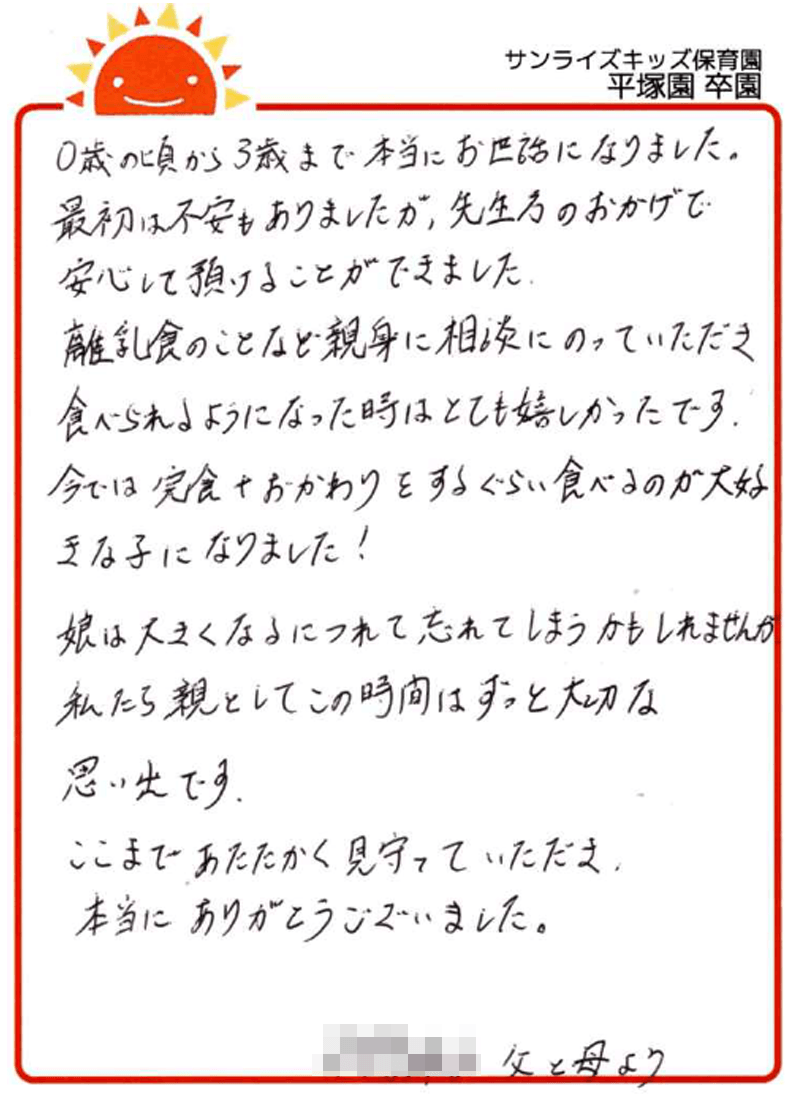 サンライズキッズ保育園
平塚園 卒園
0歳の頃から3歳まで本当にお世話になりました。
最初は不安もありましたが、先生方のおかげで
安心して預けることができました.
離乳食のことなど親身に相談にのっていただき
食べられるようになった時はとても嬉しかったです.
今では完食+おかわりをするぐらい食べるのが大好
きな子になりました!
娘は大きくなるにつれて忘れてしまうかもしれませんが
私たち親としてこの時間はずっと大切な
思い出です.
ここまであたたかく見守っていただき.
本当にありがとうございました。
父と母より